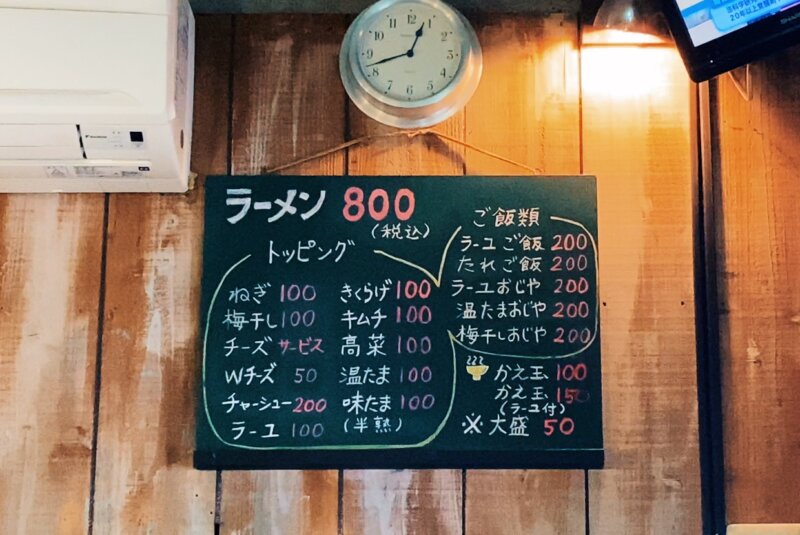 ラーメン 800
(税込)
トッピング
ねぎ 100
梅干し 100
チーズ サービス
Wチーズ 50
チャーシュー 200
ラーユ 100
きくらげ 100
キムチ 100
高菜 100
温たま 100
味たま 100
(半熟)
ご飯類
ラーユご飯 200
たれご飯 200
ラーユおじや 200
温たまおじや 200
梅干しおじや 200
かえ玉 100
かえ玉 150
(ラーユ付)
※大盛 50
12
1
2
3
4
5
6
7
8
9
10
11
20年以上
SHARP